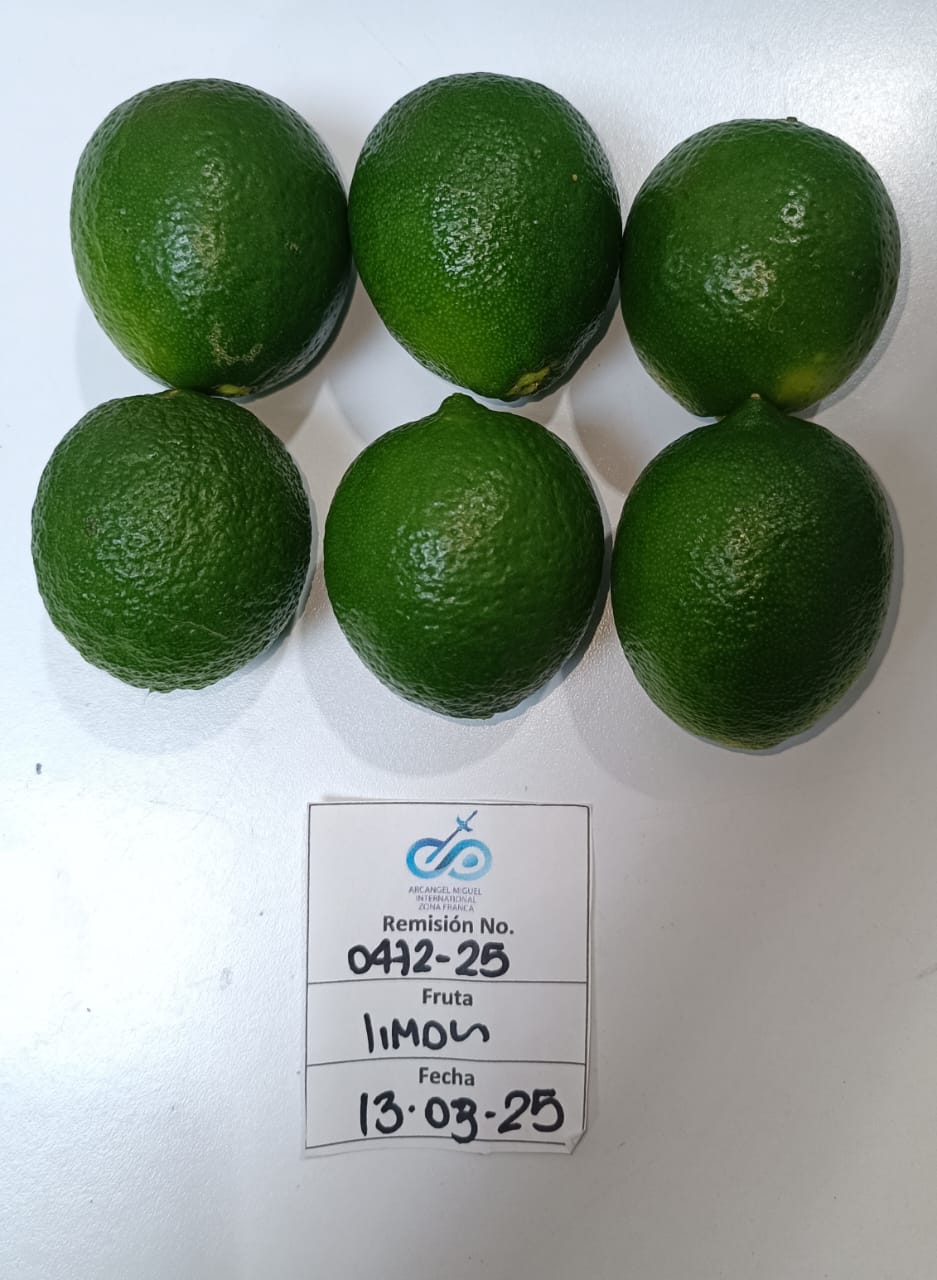 ARCANGEL MIGUEL
INTERNATIONAL
ZONA FRANCA
Remisión No.
0472-25
Fruta
limon
Fecha
13-03-25